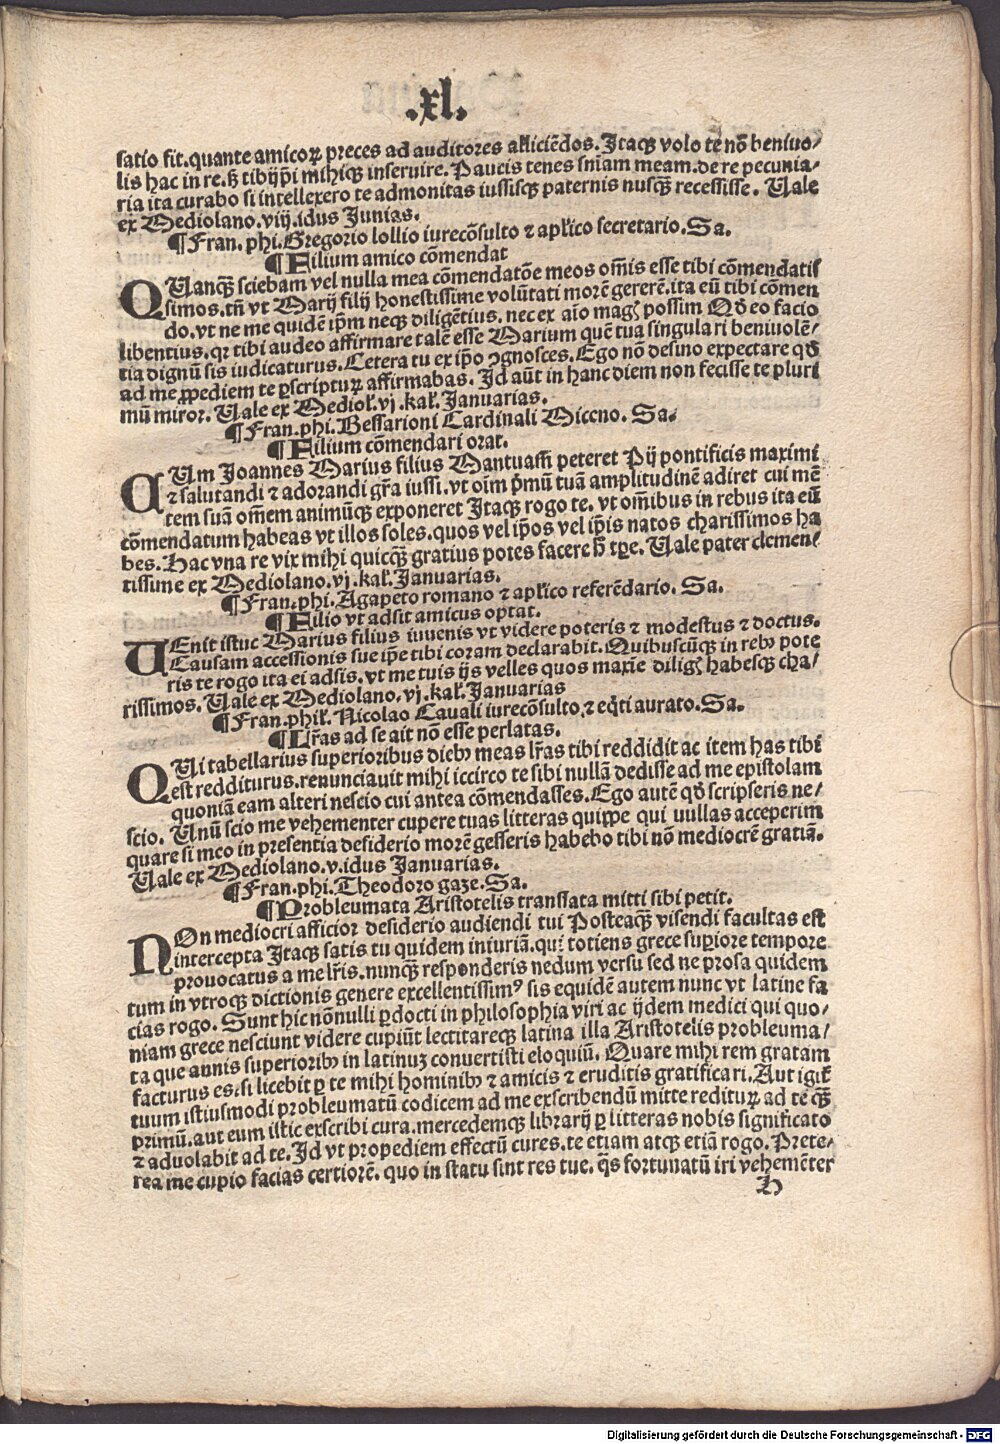 .xl.
satio fit.quante amicoꝝ preces ad auditores alliciēdos. Itaqꝫ volo te nō beniuo⸗
lis hac in re.ꝫ tibijp̄i mihiqꝫ inseruire. Paucis tenes sn̄iam meam.de re pecunia⸗
ria ita curabo si intellexero te admonitas iussisqꝫ paternis nusqꝫ̄ recessisse. Uale
ex Mediolano.viij.idus Junias.
¶Fran. phi. Gregorio lollio iurecōsulto ⁊ apl̄ico secretario. Sa.
¶Filium amico cōmendat
QUanqꝫ̄ sciebam vel nulla mea cōmendatōe meos om̄is esse tibi cōmendatis
simos.tn̄ vt Marij filij honestissime volūtati morē gererē.ita eū tibi cōmen
do.vt ne me quidē ip̄m neqꝫ diligētius, nec ex aīo magꝭ possim Qd̄ eo facio
libentius.qꝛ tibi audeo affirmare talē esse Marium quē tua singulari beniuolē⸗
tia dignū sis iudicaturus. Cetera tu ex ip̄o ꝯgnosces. Ego nō desino expectare qd̄
ad me ꝓpediem te ꝑscripturꝝ affirmabas. Id aūt in hanc diem non fecisse te pluri
mū miror. Uale ex Mediol̄.vj.kal̄.Januarias.
¶Fran.phi. Bessarioni Cardinali Niceno. Sa.
¶Filium cōmendari orat.
CUm Joannes Marius filius Mantuam̄ peteret Pij pontificis maximi
⁊ salutandi ⁊ adorandi gr̄a iussi.vt oīm pꝛ̄mū tuā amplitudinē adiret cui mē
tem suā om̄em animūqꝫ exponeret Itaqꝫ rogo te. vt om̄ibus in rebus ita eū
cōmendatum habeas vt illos soles.quos vel ip̄os vel ip̄is natos charissimos ha
bes. Hac vna re vix mihi quicqꝫ̄ gratius potes facere h̄ tꝑe. Uale pater clemen⸗
tissime ex Mediolano.vj.kal̄.Januarias.
¶Fran.phi. Agapeto romano ⁊ apl̄ico referēdario. Sa.
¶Filio vt adsit amicus optat.
UEnit istuc Marius filius iuuenis vt videre poteris ⁊ modestus ⁊ doctus.
Causam accessionis sue ip̄e tibi coram declarabit. Quibuscūqꝫ in rebꝰ pote
ris te rogo ita ei adsis.vt me tuis ijs velles quos maxīe diligꝭ habesqꝫ cha⸗
rissimos. Uale ex Mediolano.vj.kal̄.Januarias
¶Fran.phil̄. Nicolao Cauali iurecōsulto.⁊ eq̄ti aurato. Sa.
¶Lr̄as ad se ait nō esse perlatas.
QUi tabellarius superioribus diebꝰ meas lr̄as tibi reddidit ac item has tibi
est redditurus.renunciauit mihi iccirco te sibi nullā dedisse ad me epistolam
quoniā eam alteri nescio cui antea cōmendasses. Ego autē qd̄ scripseris ne⸗
scio. Unū scio me vehementer cupere tuas litteras quippe qui nullas acceperim
quare si meo in presentia desiderio morē gesseris habebo tibi nō mediocrē gratiā.
Uale ex Mediolano.v.idus Januarias.
¶Fran.phi. Theodoro gaze. Sa.
¶Probleumata Aristotelis translata mitti sibi petit.
NOn mediocri afficior desiderio audiendi tui Posteaqꝫ̄ visendi facultas est
intercepta Itaqꝫ satis tu quidem iniuriā.qui totiens grece sup̄iore tempore
prouocatus a me lr̄is.nunqꝫ̄ responderis nedum versu sed ne prosa quidem
tum in vtroqꝫ dictionis genere excellentissimꝰ sis equidē autem nunc vt latine fa
cias rogo. Sunt hic nōnulli ꝑdocti in philosophia viri ac ijdem medici qui quo⸗
niam grece nesciunt videre cupiūt lectitareqꝫ latina illa Aristotelis probleuma⸗
ta que annis superioribꝰ in latinuꝫ conuertisti eloquiū. Quare mihi rem gratam
facturus es.si licebit ꝑ te mihi hominibꝰ ⁊ amicis ⁊ eruditis gratificari. Aut igit̄
tuum istiusmodi probleumatū codicem ad me exscribendū mitte rediturꝝ ad te qꝫ̄
primū.aut eum istic exscribi cura.mercedemqꝫ librarij ꝑ litteras nobis significato
⁊ aduolabit ad te. Id vt propediem effectū cures.te etiam atqꝫ etiā rogo. Prete⸗
rea me cupio facias certiorē. quo in statu sint res tue. q̄s fortunatū iri vehemēter
h
Digitalisierung gefördert durch die Deutsche Forschungsgemeinschaft - DFG